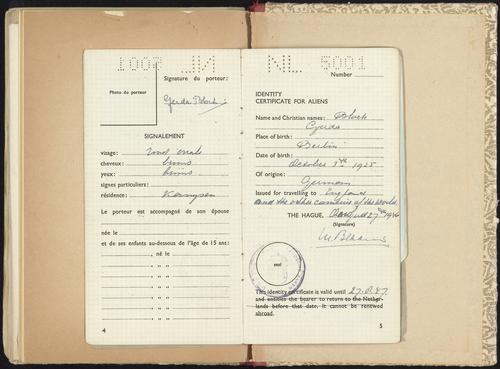 NL 5001
Signature du porteur:
Photo du porteur
SIGNALEMENT
visage:
cheveux: bruns
yeux: bruns
signes particuliers:
résidence:
Le porteur est accompagné de son épouse
née le
et de ses enfants au-dessous de l'âge de 15 ans:
, né le
" " "
" " "
" " "
" " "
" " "
4
NL 5001
Number
IDENTITY
CERTIFICATE FOR ALIENS
Name and Christian names:
Gerda
Place of birth:
Berlin
Date of birth:
October 3rd 1925
Of origin:
German
Issued for travelling to England
and the other countries of the world
THE HAGUE, August 27th 1946
(Signature)
seal
This identity certificate is valid until
and entitles the bearer to return to the Nether-
lands before that date. It cannot be renewed
abroad.
5